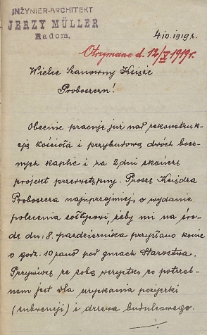 INŻYNIER-ARCHITEKT
JERZY MÜLLER
Radom.
4/10. 1919 r.
Otrzymano d. 12/X 1919 r.
Wielce Szanowny Księże
Proboszczu!
Obecnie pracuję już nad rekonstruk-
cją kościoła i przybudową dwóch bocz-
nych kaplic i za 2 dni skończę
projekt . Proszę Księdza
Proboszcza najuprzejmiej, o wydanie
polecenia , żeby mi na śro-
dę dn. 8. października przysłano konie
o godz. 10 rano pod gmach Starostwa.
Przywiozę ze sobą wszystko co potrzeb-
nem jest dla uzyskania pożyczki
(subwencji) i drzewa budulcowego.